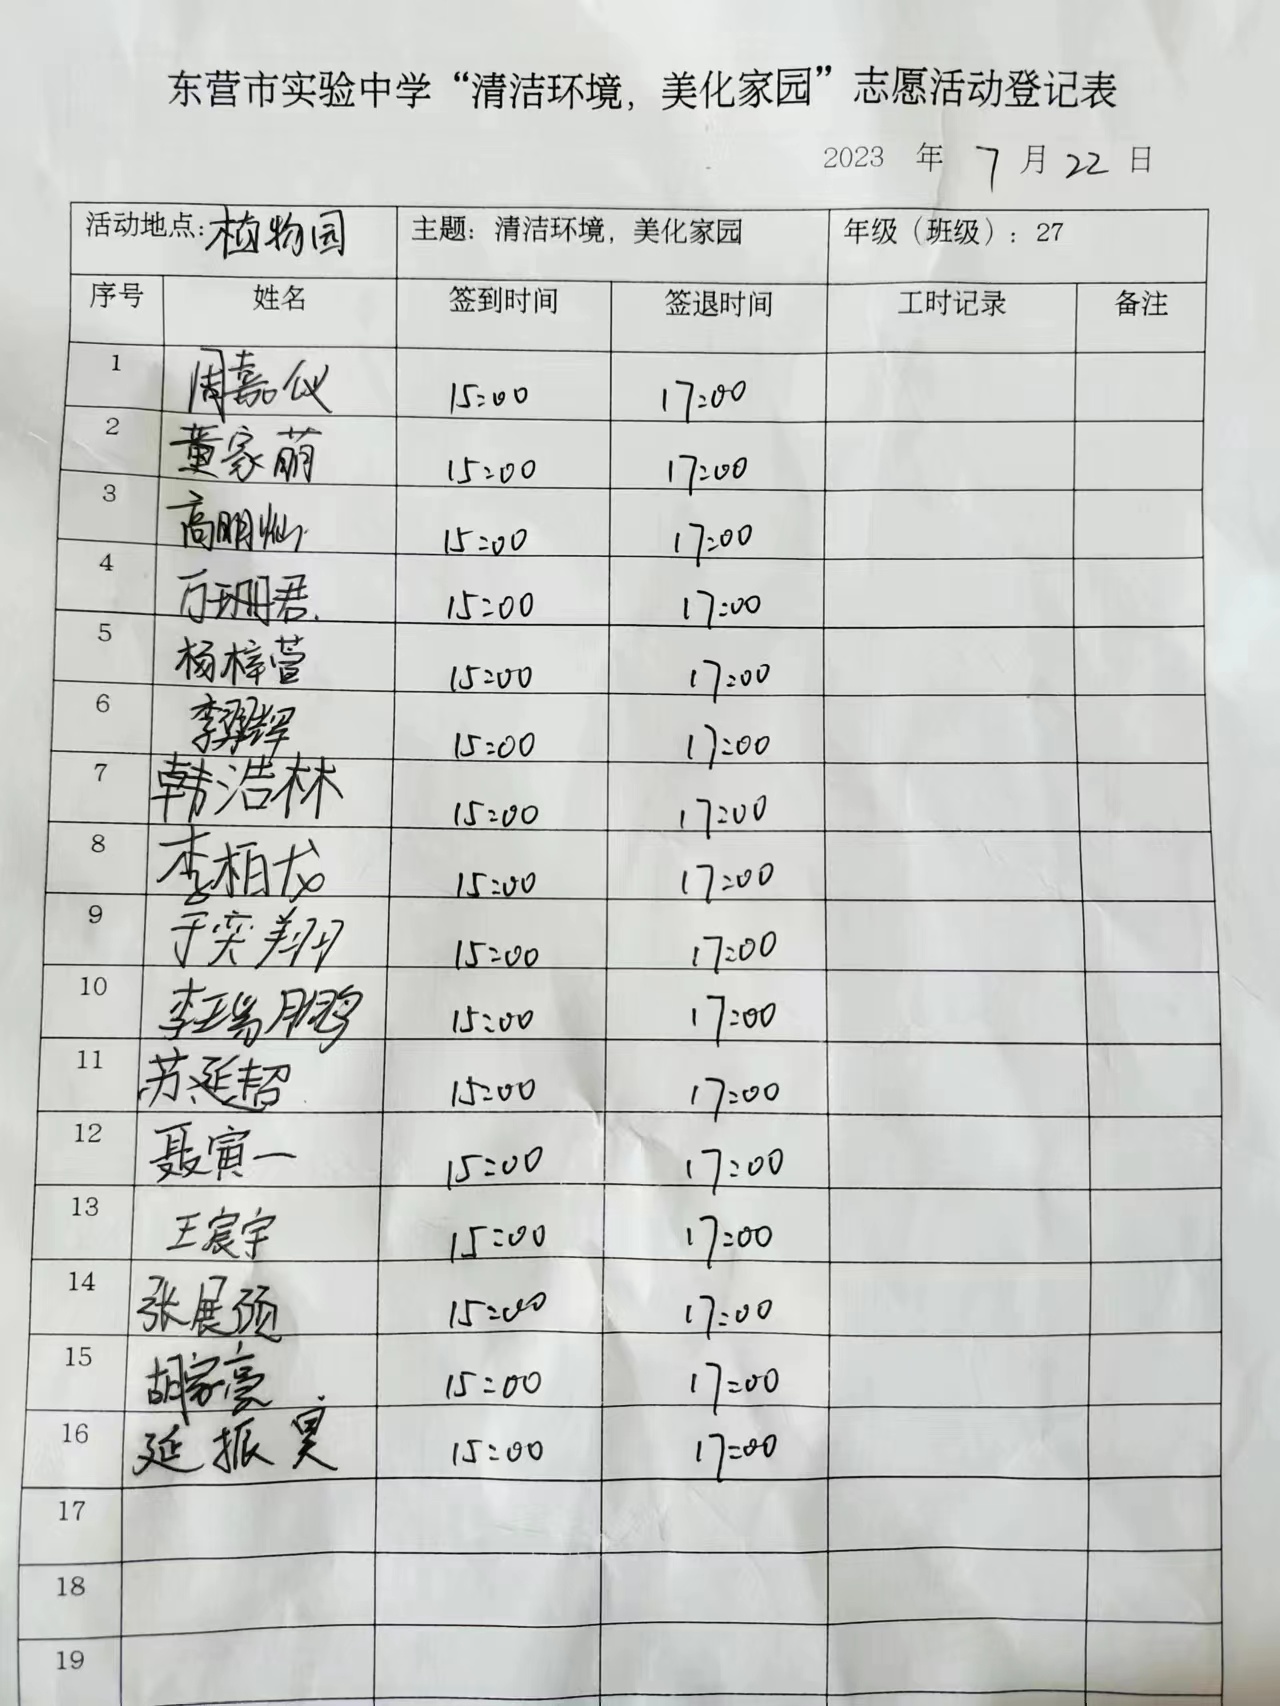 东营市实验中学“清洁环境，美化家园”志愿活动登记表
2023 年 7 月 22 日
活动地点：植物园 主题：清洁环境，美化家园 年级（班级）：27
序号 姓名 签到时间 签退时间 工时记录 备注
1 周嘉仪 15:00 17:00
2 董家萌 15:00 17:00
3 高明灿 15:00 17:00
4 万珊君 15:00 17:00
5 杨梓萱 15:00 17:00
6 李 15:00 17:00
7 韩浩林 15:00 17:00
8 李柏龙 15:00 17:00
9 于奕翔 15:00 17:00
10 李瑞鹏 15:00 17:00
11 苏延超 15:00 17:00
12 聂寅一 15:00 17:00
13 王宸宇 15:00 17:00
14 张展硕 15:00 17:00
15 胡家亮 15:00 17:00
16 延振昊 15:00 17:00
17
18
19